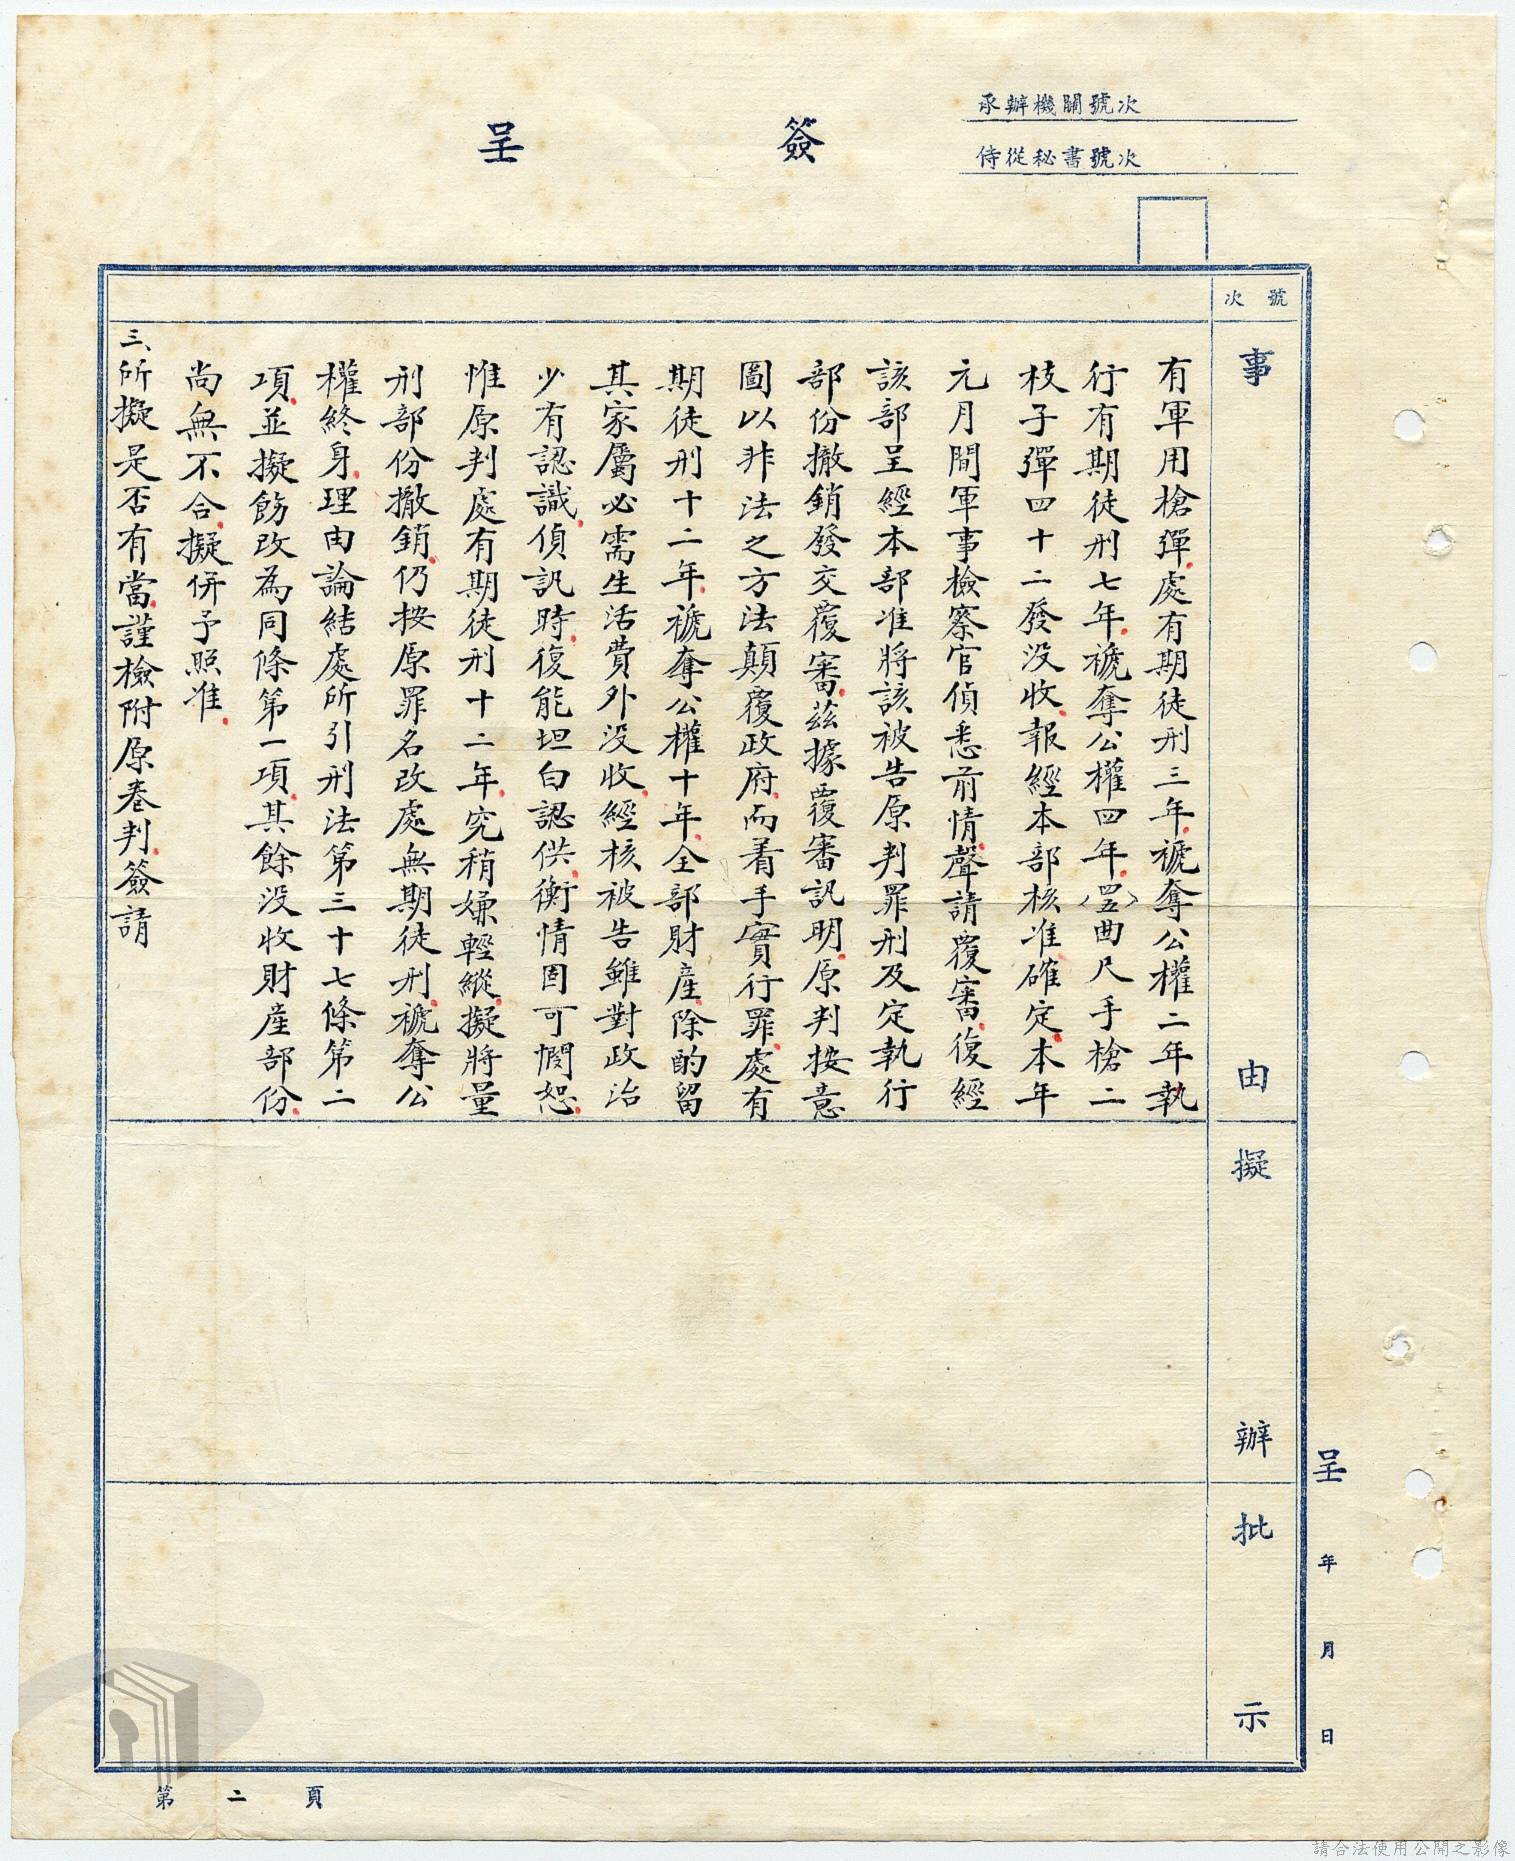 簽呈
承辦機關號次
侍從秘書號次
號次
事由
擬辦
批示
有軍用槍彈處有期徒刑三年褫奪公權二年執
行有期徒刑七年褫奪公權四年四五曲尺手槍二
枝子彈四十二發没收報經本部核准確定本年
元月間軍事檢察官偵悉前情聲請覆審復經
該部呈經本部准將該被告原判罪刑及定執行
部份撤銷發交覆審茲據覆審訊明原判按意
圖以非法之方法顛覆政府而着手實行罪處有
期徒刑十二年褫奪公權十年全部財產除酌留
其家屬必需生活費外没收經核被告雖對政治
少有認識偵訊時復能坦白認供衡情固可憫恕
惟原判處有期徒刑十二年究稍嫌輕縱擬將量
刑部份撤銷仍按原罪名改處無期徒刑褫奪公
權終身理由論結處所引刑法第三十七條第二
項並擬飭改為同條第一項其餘没收財產部份
尚無不合擬併予照准
三、所擬是否有當謹檢附原卷判簽請
呈 年 月 日
第二頁
請合法使用公開之影像